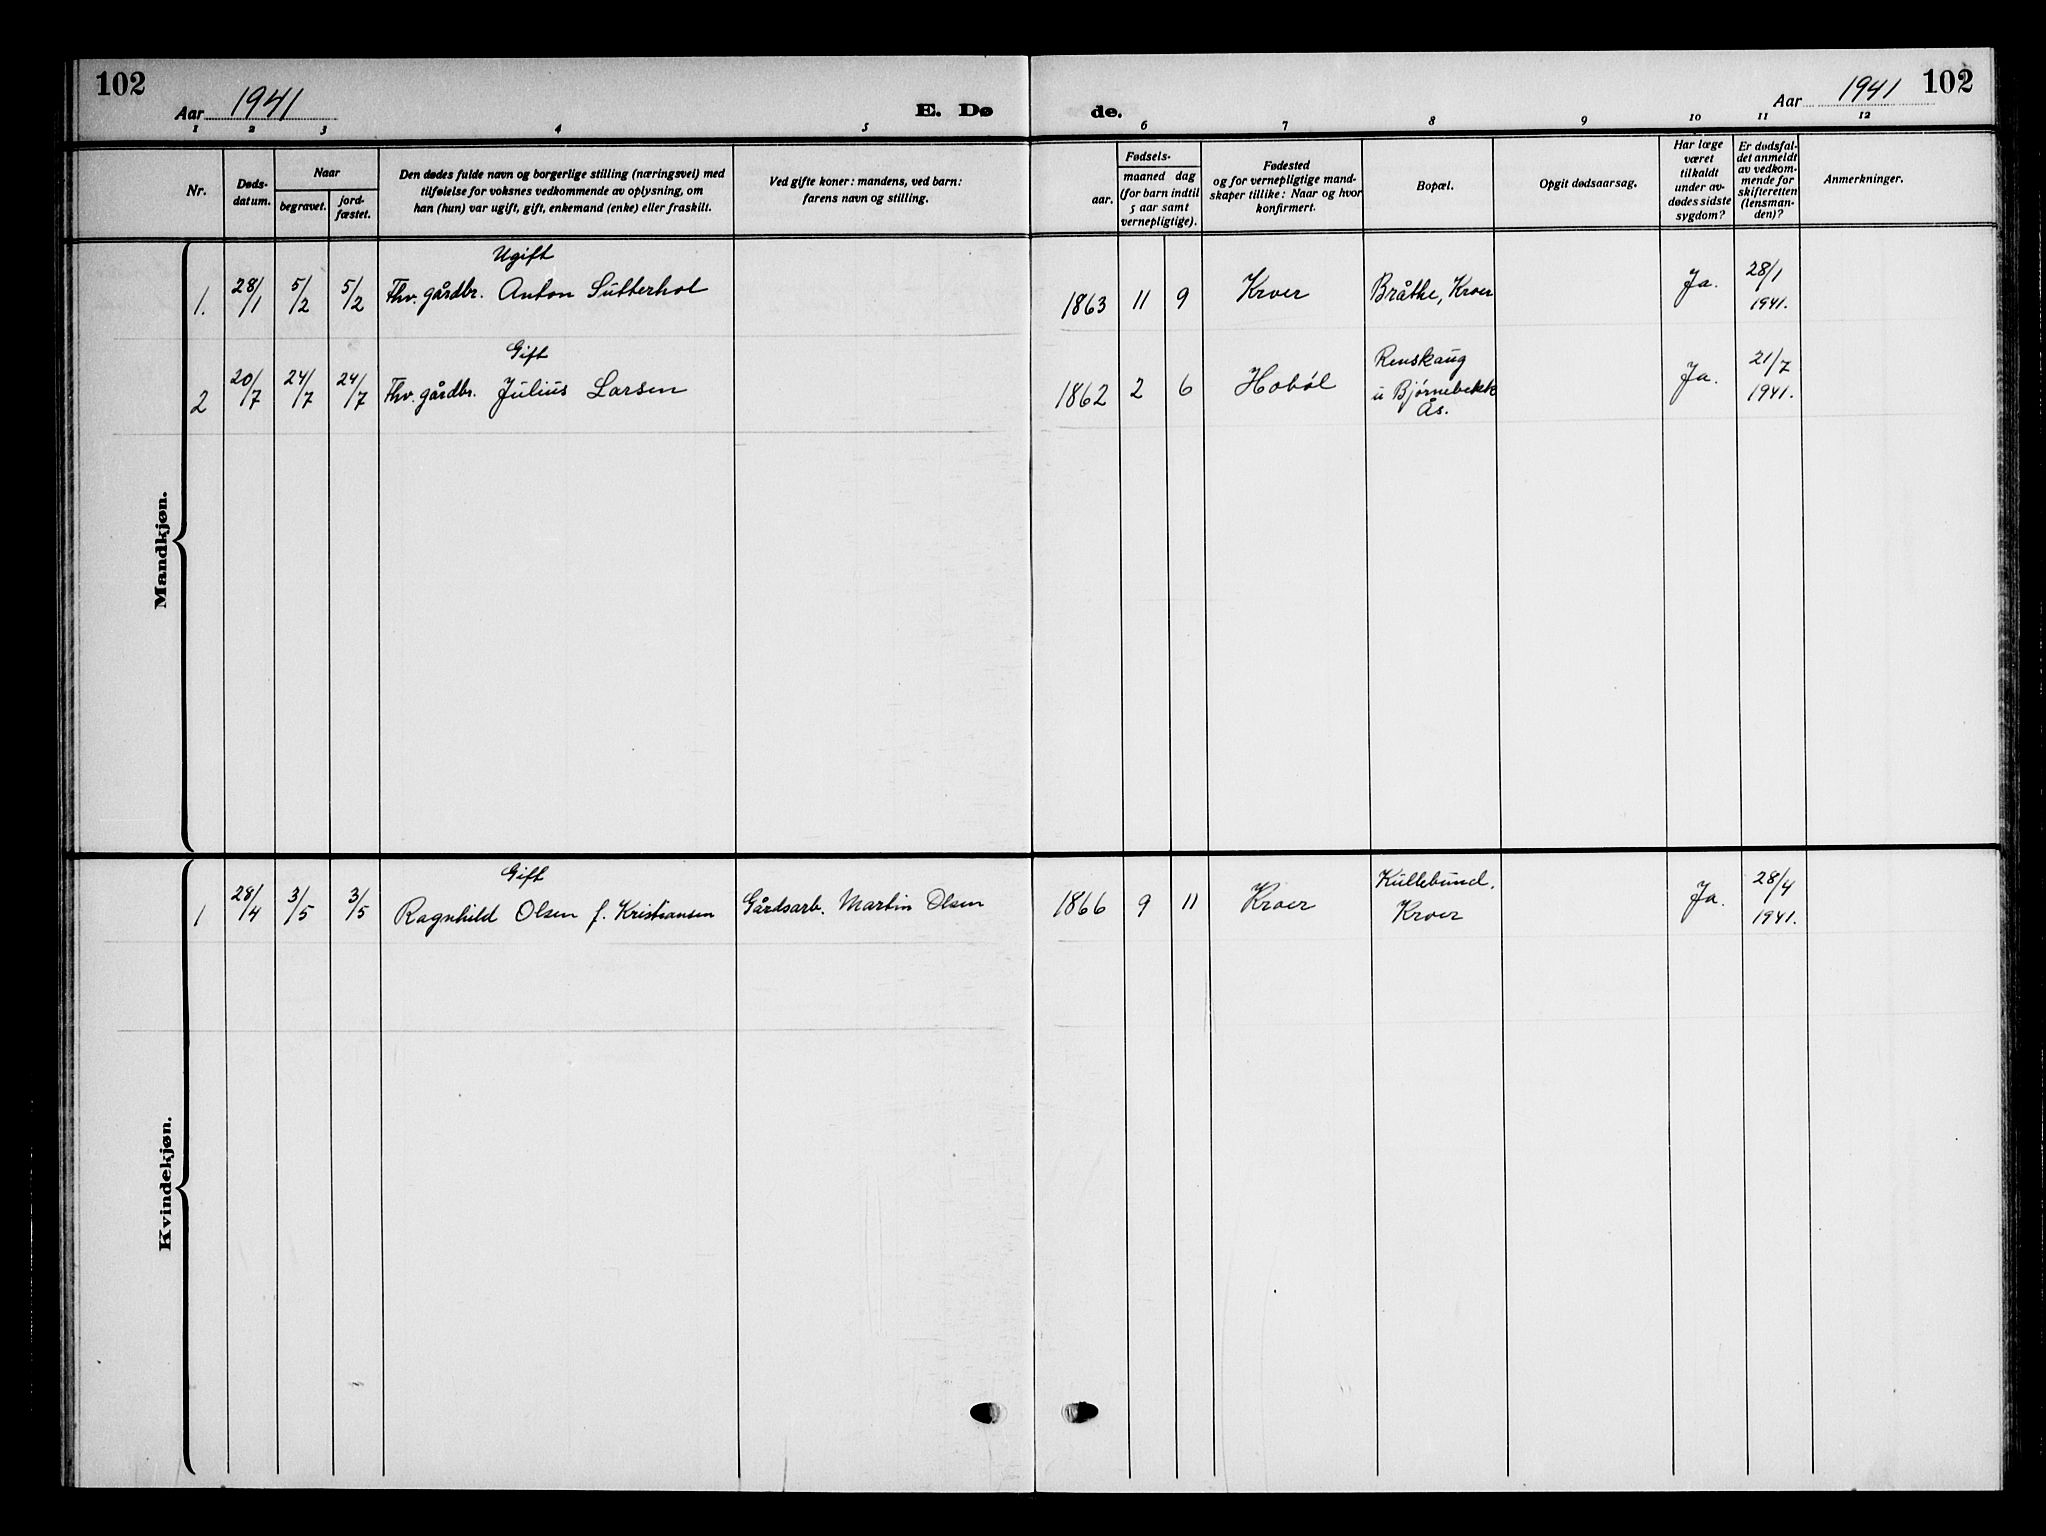 102
Aar 1941
E. Dø
de.
Aar 1941
102
1 2 3 4 5 6 7 8 9 10 11 12
Nr.
Døds-
datum.
Naar
begravet.
jord-
fæstet.
Den dødes fulde navn og borgerlige stilling (næringsvei) med
tilføielse for voksnes vedkommende av oplysning, om
han (hun) var ugift, gift, enkemand (enke) eller fraskilt.
Ved gifte koner: mandens, ved barn:
farens navn og stilling.
Fødsels-
aar.
maaned dag
(for barn indtil
5 aar samt
vernepligtige).
Fødested
og for vernepligtige mand-
skaper tillike: Naar og hvor
konfirmert.
Bopæl.
Opgit dødsaarsag.
Har læge
været
tilkaldt
under av-
dødes sidste
sygdom?
Er dødsfal-
det anmeldt
av vedkom-
mende for
skifteretten
(lensman-
den)?
Anmerkninger.
Mandkjøn.
Ugift
1. 28/1 5/2 5/2 Fhv. gårdbr. Anton Sutterhol 1863 11 9 Kroer Bråthe, Kroer Ja. 28/1
1941.
Gift
2 20/7 24/7 24/7 Fhv. gårdbr. Julius Larsen 1862 2 6 Hobøl Renskaug
u Bjørnebekk
Ås.
Ja. 21/7
1941.
Kvindekjøn.
Gift
1 28/4 3/5 3/5 Ragnhild Olsen f. Kristiansen Gårdsarb. Martin Olsen 1866 9 11 Kroer Kullebund.
Kroer
Ja. 28/4
1941.